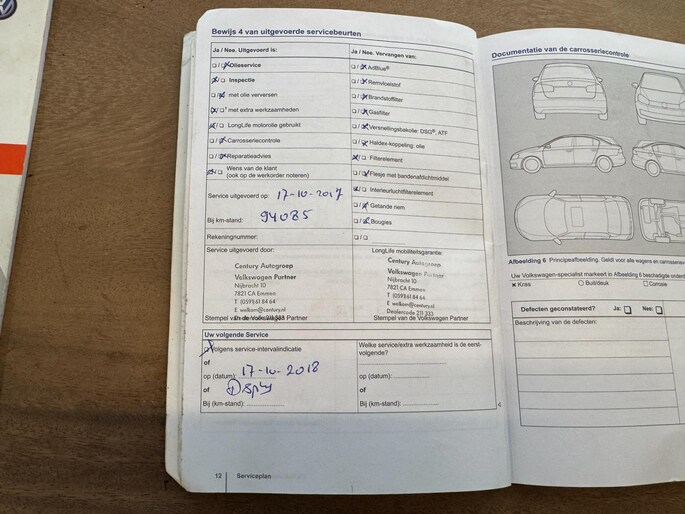 Bewijs 4 van uitgevoerde servicebeurten
Ja / Nee. Uitgevoerd is:
□/□ Olieservice
□/□ Inspectie
□/□ met olie verversen
□/□ met extra werkzaamheden
□/□ LongLife motorolie gebruikt
□/□ Carrosseriecontrole
□/□ Reparatieadvies
□/□ Wens van de klant
(ook op de werkorder noteren)
Service uitgevoerd op: 17-10-2017
Bij km-stand: 94085
Rekeningnummer:
Service uitgevoerd door:
Century Autogroep
Volkswagen Partner
Nijbracht 10
7821 CA Emmen
T (0591) 61 84 64
E welkom@century.nl
Stempel van de Volkswagen Partner
Ja / Nee. Vervangen van:
□/□ AdBlue®
□/□ Remvloeistof
□/□ Brandstoffilter
□/□ Gasfilter
□/□ Versnellingsbakolie: DSG®, ATF
□/□ Haldex-koppeling: olie
□/□ Filterelement
□/□ Flesje met bandenafdichtmiddel
□/□ Interieurluchtfilterelement
□/□ Getande riem
□/□ Bougies
□/□
LongLife mobiliteitsgarantie:
Century Autogroep
Volkswagen Partner
Nijbracht 10
7821 CA Emmen
T (0591) 61 84 64
E welkom@century.nl
Dealercode 211 333
Stempel van de Volkswagen Partner
Uw volgende Service
□ Volgens service-intervalindicatie
of
op (datum): 17-10-2018
of
Bij (km-stand):
Welke service/extra werkzaamheid is de eerst-
volgende?
op (datum):
of
Bij (km-stand):
12 Serviceplan
Documentatie van de carrosseriecontrole
Afbeelding 6 Principeafbeelding. Geldt voor alle wagens en
Uw Volkswagen-specialist markeert in Afbeelding 6 beschadigde
× Kras ○ Buil/deuk □ Corrosie
Defecten geconstateerd? Ja: □ Nee: □
Beschrijving van de defecten: